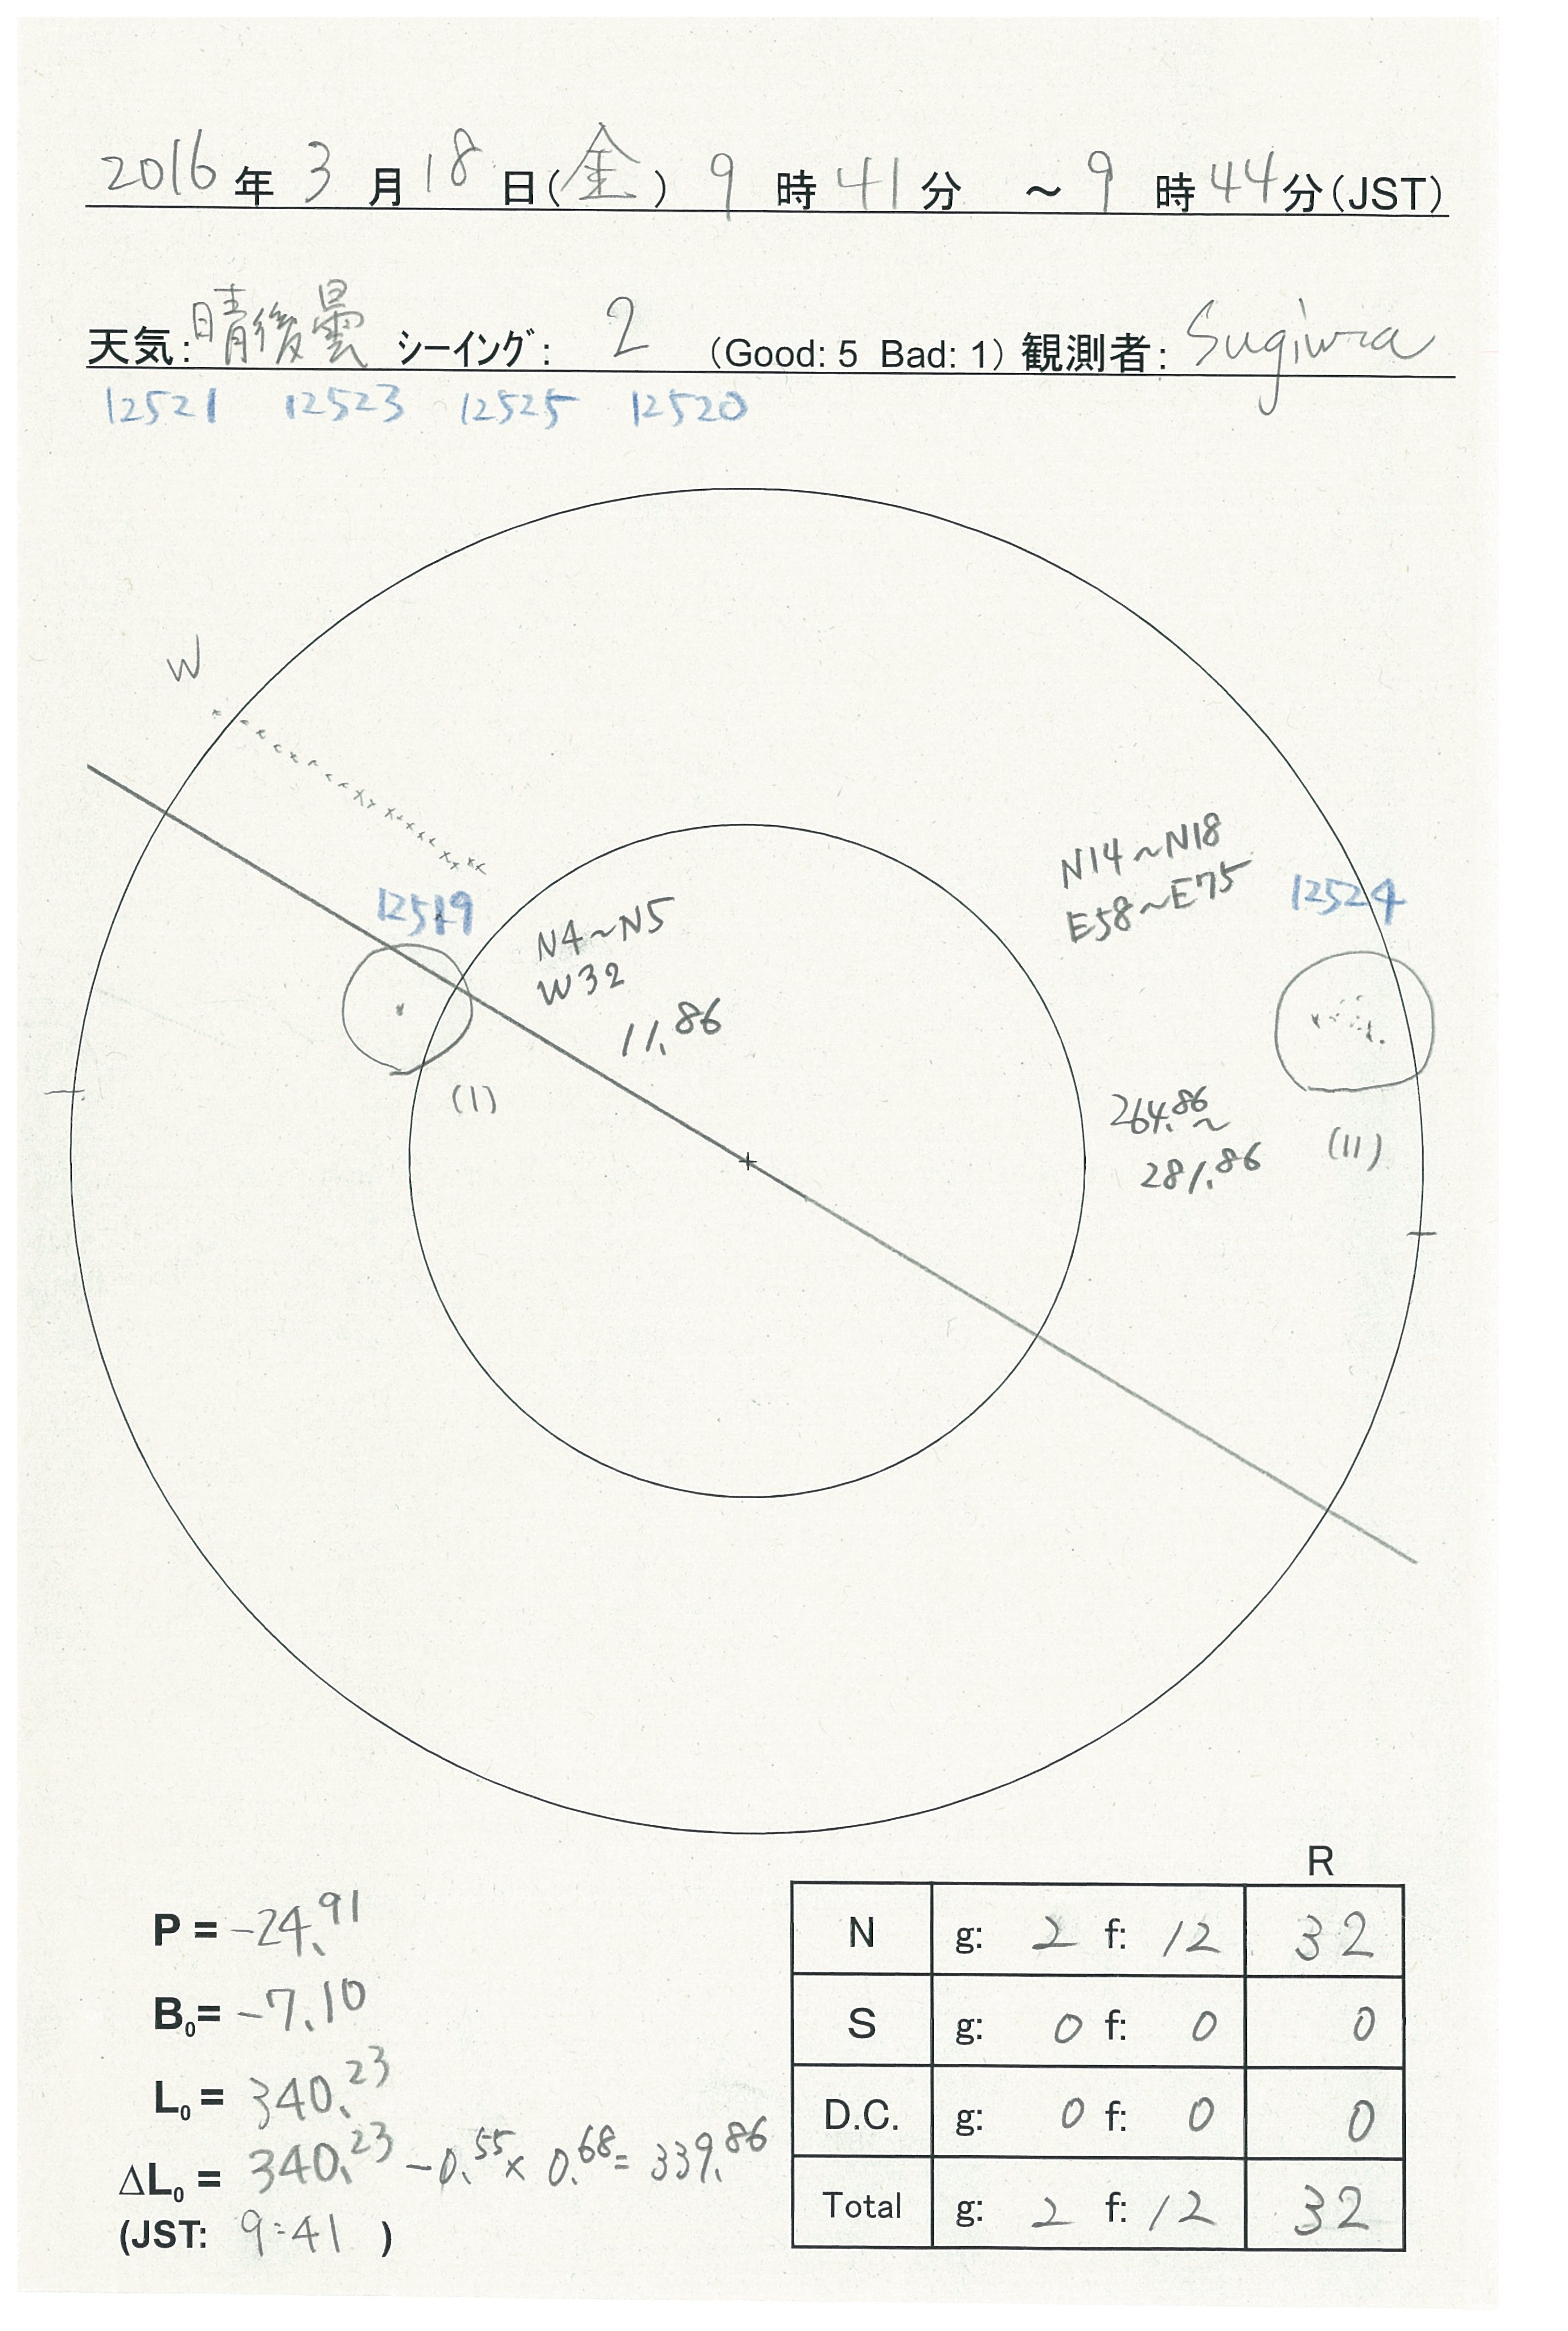 2016年 3月18日(金) 9時41分 ～9時44分(JST)
天気:晴後曇 シーイング: 2 (Good: 5 Bad: 1) 観測者: Sugiura
12521 12523 12525 12520
W
N14～N18
E58～E75
12524
12519
N4～N5
W32
11.86
(I)
264.86
～
281.86
(II)
R
N g: 2 f: 12 32
S g: 0 f: 0 0
D.C. g: 0 f: 0 0
Total g: 2 f: 12 32
P = -24.91
B0= -7.10
L0 = 340.23
ΔL0 = 340.23 -0.55 × 0.68 = 339.86
(JST: 9:41 )